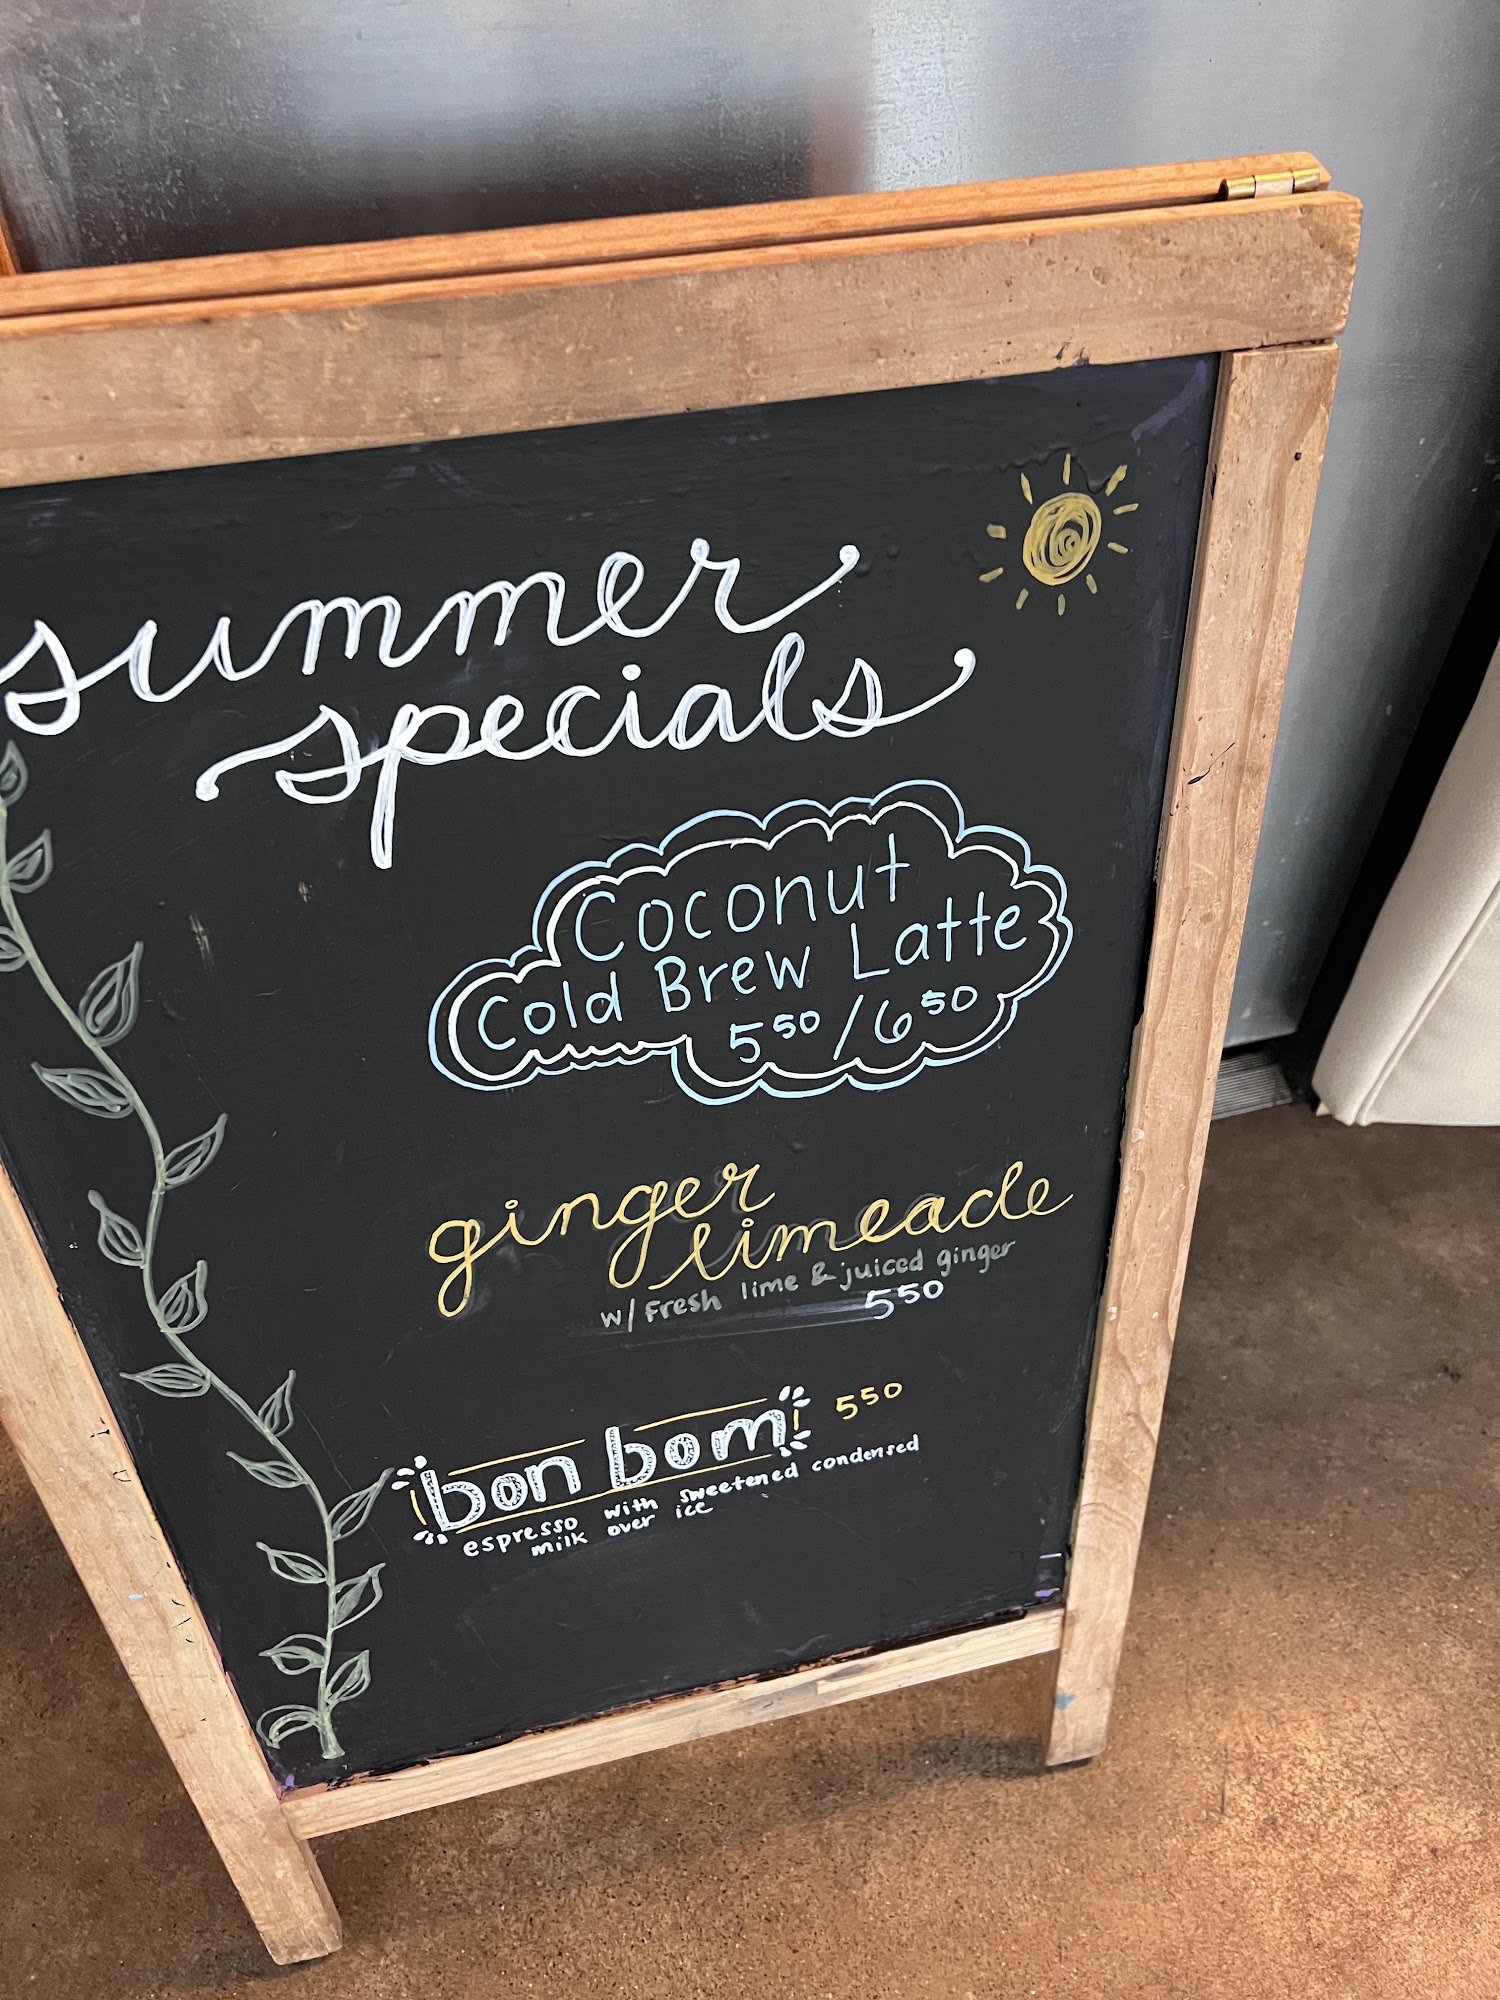 summer
specials
Coconut
Cold Brew Latte
5⁵⁰/6⁵⁰
ginger
limeade
w/ Fresh lime & juiced ginger
5⁵⁰
bon bom 5⁵⁰
espresso with sweetened condensed
milk over ice